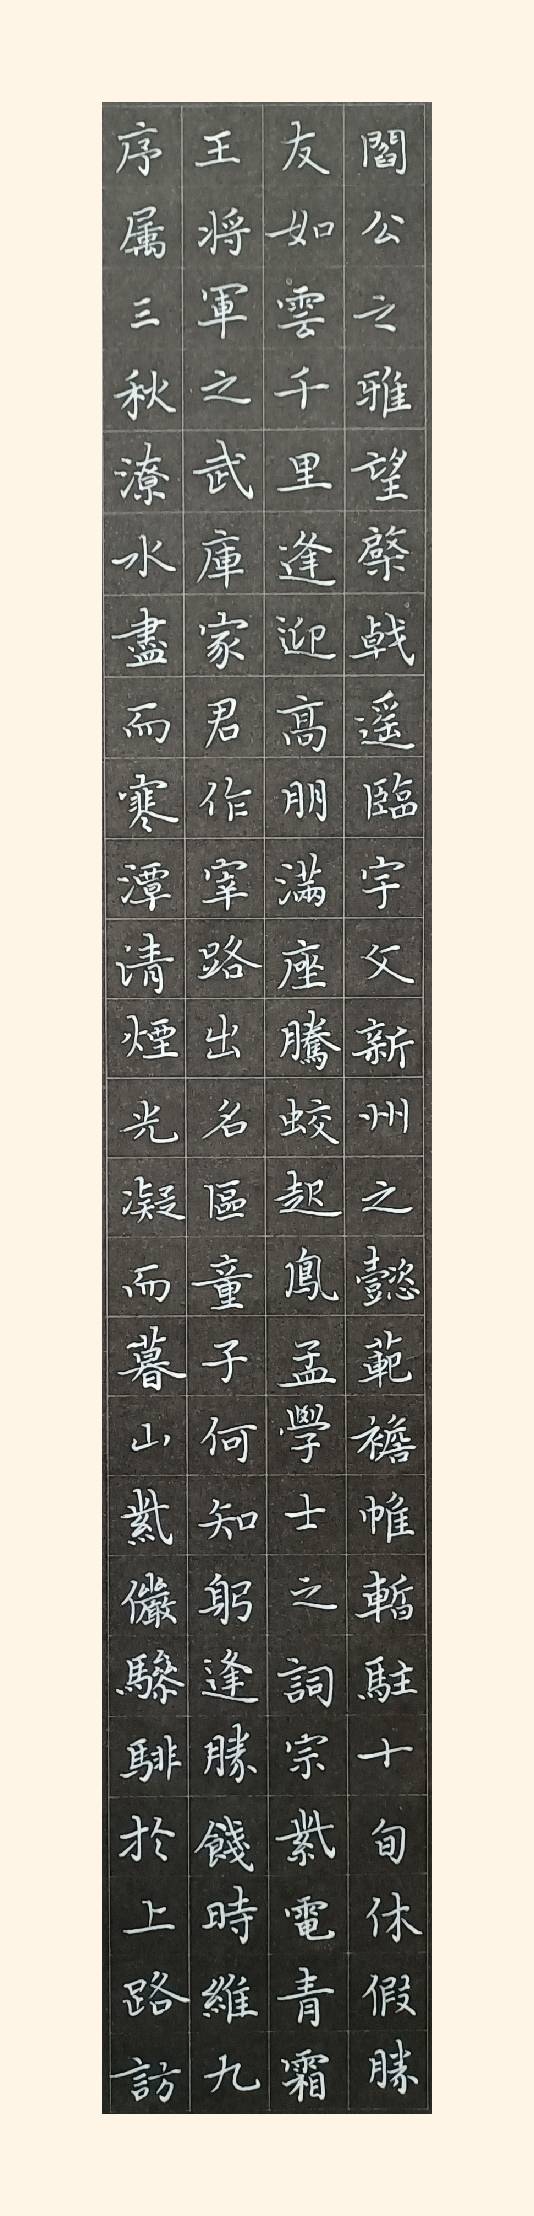 閻公之雅望棨戟遥臨宇文新州之懿範襜帷暫駐十旬休假勝
友如雲千里逢迎高朋滿座騰蛟起鳳孟學士之詞宗紫電青霜
王将軍之武庫家君作宰路出名區童子何知躬逢勝餞時維九
序属三秋潦水盡而寒潭清煙光凝而暮山紫儼驂騑於上路訪